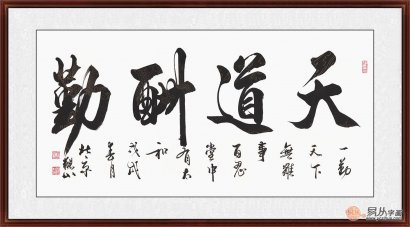 天道酬勤
一勤
天下
無難
事
百忍
堂中
有太
和
戊戌
月
北京
易从字画